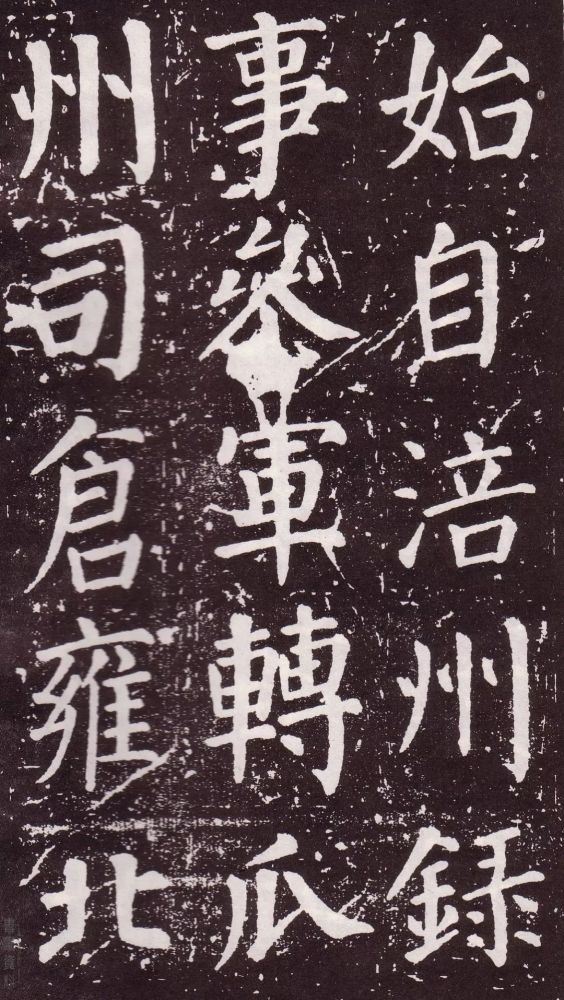 始自涪州録
事叅軍轉瓜
州司倉雍北